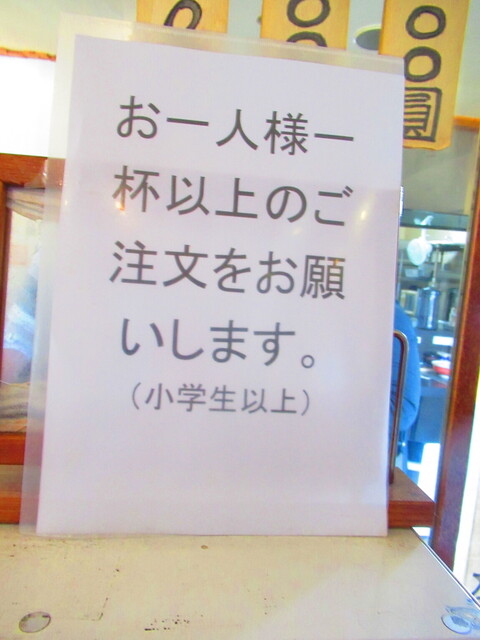 お一人様一
杯以上のご
注文をお願
いします。
（小学生以上）
〇〇圓